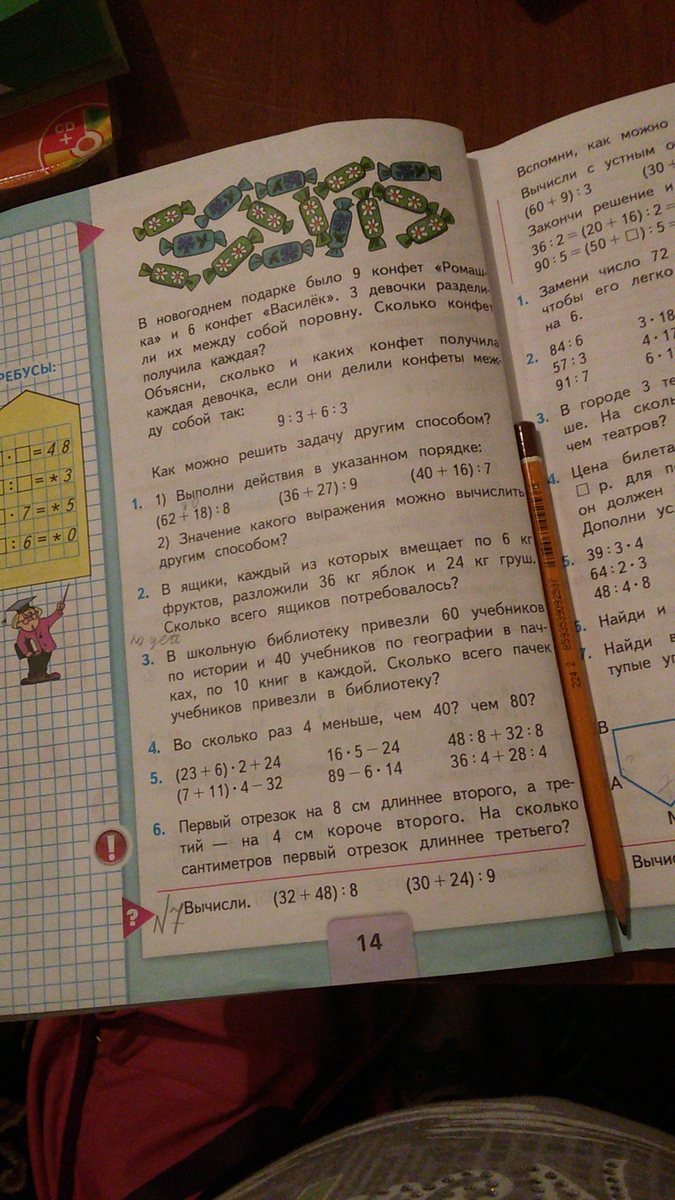 CD
+
В новогоднем подарке было 9 конфет «Ромаш-
ка» и 6 конфет «Василёк». 3 девочки раздели-
ли их между собой поровну. Сколько конфет
получила каждая?
Объясни, сколько и каких конфет получила
каждая девочка, если они делили конфеты меж-
ду собой так:
9 : 3 + 6 : 3
Как можно решить задачу другим способом?
1. 1) Выполни действия в указанном порядке:
(62 + 18) : 8 (36 + 27) : 9 (40 + 16) : 7
2) Значение какого выражения можно вычислить
другим способом?
2. В ящики, каждый из которых вмещает по 6 кг
фруктов, разложили 36 кг яблок и 24 кг груш.
Сколько всего ящиков потребовалось?
3. В школьную библиотеку привезли 60 учебников
по истории и 40 учебников по географии в пач-
ках, по 10 книг в каждой. Сколько всего пачек
учебников привезли в библиотеку?
4. Во сколько раз 4 меньше, чем 40? чем 80?
5. (23 + 6) · 2 + 24 16 · 5 − 24 48 : 8 + 32 : 8
(7 + 11) · 4 − 32 89 − 6 · 14 36 : 4 + 28 : 4
6. Первый отрезок на 8 см длиннее второго, а тре-
тий — на 4 см короче второго. На сколько
сантиметров первый отрезок длиннее третьего?
!
? N7 Вычисли. (32 + 48) : 8 (30 + 24) : 9
14
РЕБУСЫ:
· □ = 4 8
: □ = * 3
· 7 = * 5
: 6 = * 0
Вспомни, как можно
Вычисли с устным
(60 + 9) : 3 (30 +
Закончи решение и
36 : 2 = (20 + 16) : 2 =
90 : 5 = (50 + □) : 5 =
1. Замени число 72
чтобы его легко
на 6.
2. 84 : 6 3 · 18
57 : 3 4 · 17
91 : 7 6 · 1
3. В городе 3
ше. На
чем театров?
4. Цена билета
□ р. для
он должен
Дополни
5. 39 : 3 · 4
64 : 2 · 3
48 : 4 · 8
6. Найди и
7. Найди
тупые
В
А
Вычис